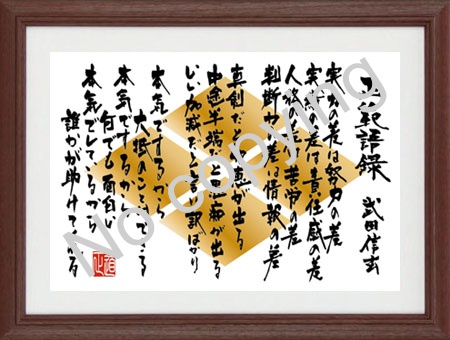 語録 武田信玄
実力の差は努力の差
実績の差は責任感の差
人格の差は苦労の差
判断力の差は情報の差
真剣だと知恵が出る
中途半端だと愚痴が出る
いい加減だと言い訳ばかり
本気でするから
大抵のことはできる
本気でするから
何でも面白い
本気でしているから
誰かが助けてくれる
No copying